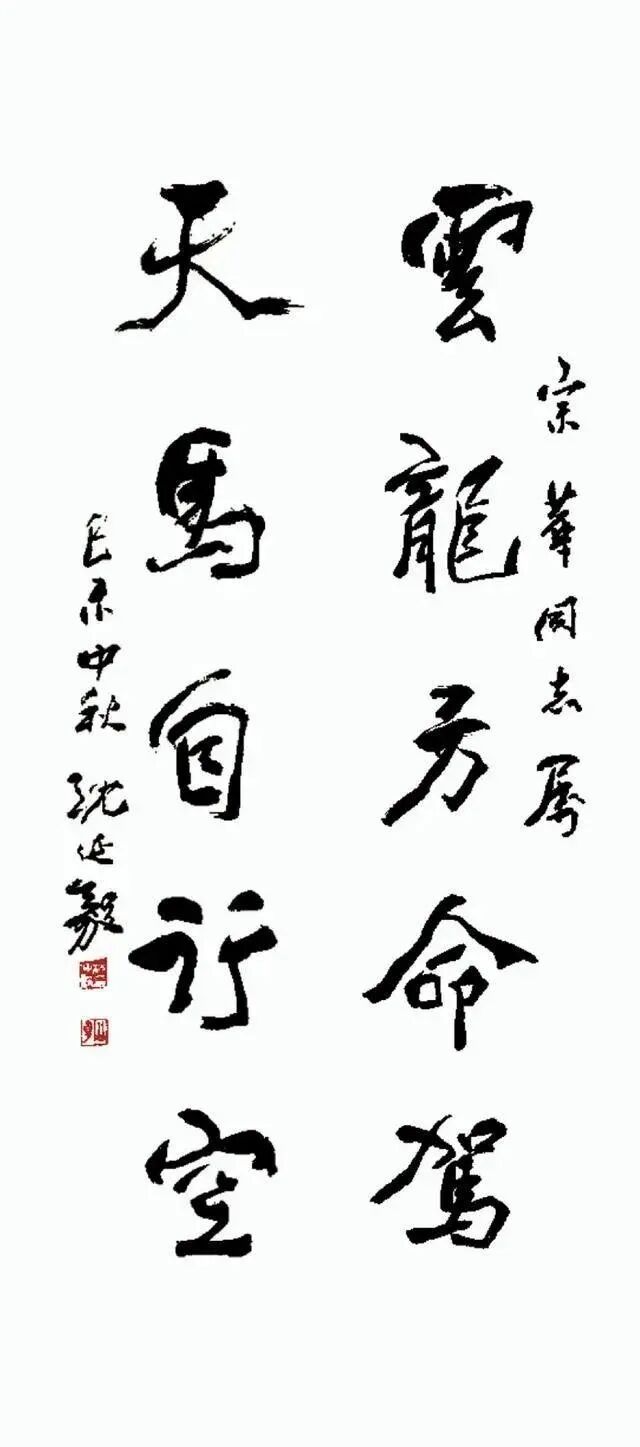 宗華同志屬
雲龍方命駕
天馬自行空
己未中秋 沈延毅